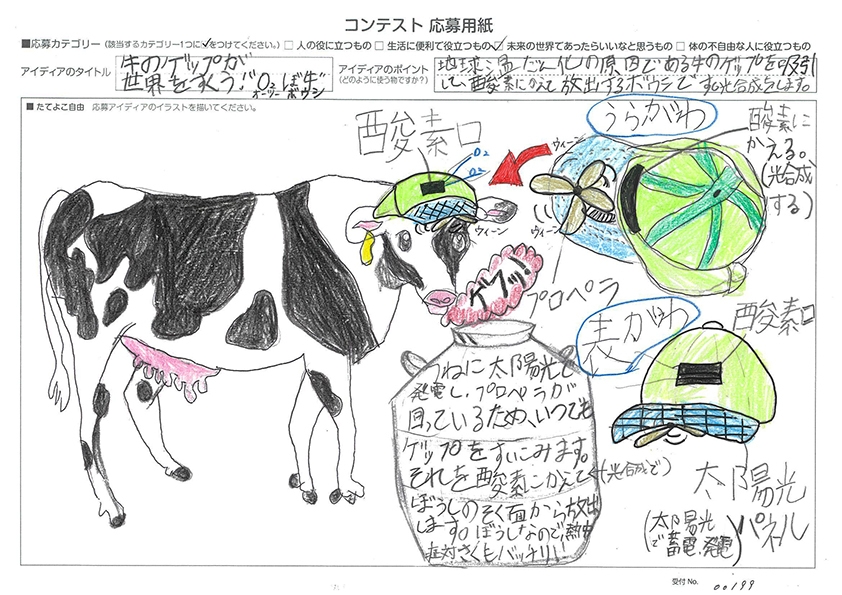 コンテスト 応募用紙
■応募カテゴリー (該当するカテゴリー1つに✓をつけてください。) □ 人の役に立つもの □ 生活に便利で役立つもの ☑ 未来の世界であったらいいなと思うもの □ 体の不自由な人に役立つもの
アイディアのタイトル
牛のゲップが
世界をすくう!!O₂ぼギ
オーツー ボウシ
アイディアのポイント
(どのように使う物ですか?)
地球温だん化の原因である牛のゲップを吸引
して、酸素にかえて放出するボウシです。光合成もします。
■たてよこ自由 応募アイディアのイラストを描いてください。
酸素口
O₂
O₂
ウィーン
ゲフッ!
うらがわ
ウィーン
ウィーン
プロペラ
酸素に
かえる。
(光合成
する)
表がわ
酸素口
太陽光
パネル
(太陽光
で蓄電、発電)
つねに太陽光で
発電し、プロペラが
回っているため、いつでも
ゲップをすいこみます。
それを酸素にかえて(光合成で)
ぼうしのそく面から放出
します。ぼうしなので、熱中
症対さくもバッチリ!
受付 No.
00199